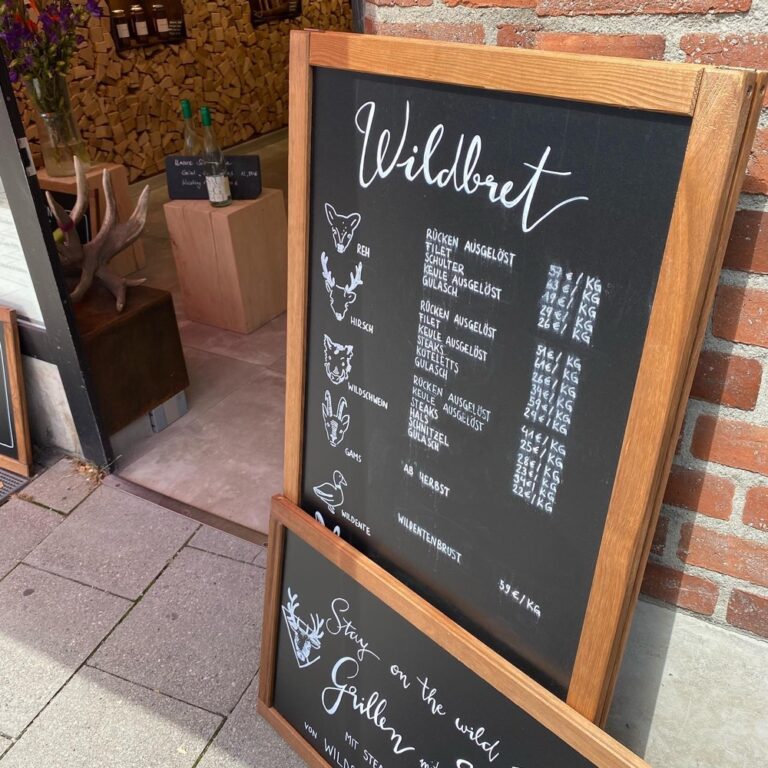 Wildbret
REH
RÜCKEN AUSGELÖST
FILET
SCHULTER
KEULE AUSGELÖST
GULASCH
63 €/KG
19 €/KG
29 €/KG
26 €/KG
HIRSCH
RÜCKEN AUSGELÖST
FILET
KEULE AUSGELÖST
STEAKS
KOTELETTS
GULASCH
51 €/KG
61 €/KG
26 €/KG
34 €/KG
39 €/KG
24 €/KG
WILDSCHWEIN
RÜCKEN AUSGELÖST
KEULE AUSGELÖST
STEAKS
HALS
SCHNITZEL
GULASCH
41 €/KG
25 €/KG
28 €/KG
23 €/KG
34 €/KG
22 €/KG
GAMS
AB HERBST
WILDENTE
WILDENTENBRUST
39 €/KG
Stay on the wild
Grillen
MIT
VON